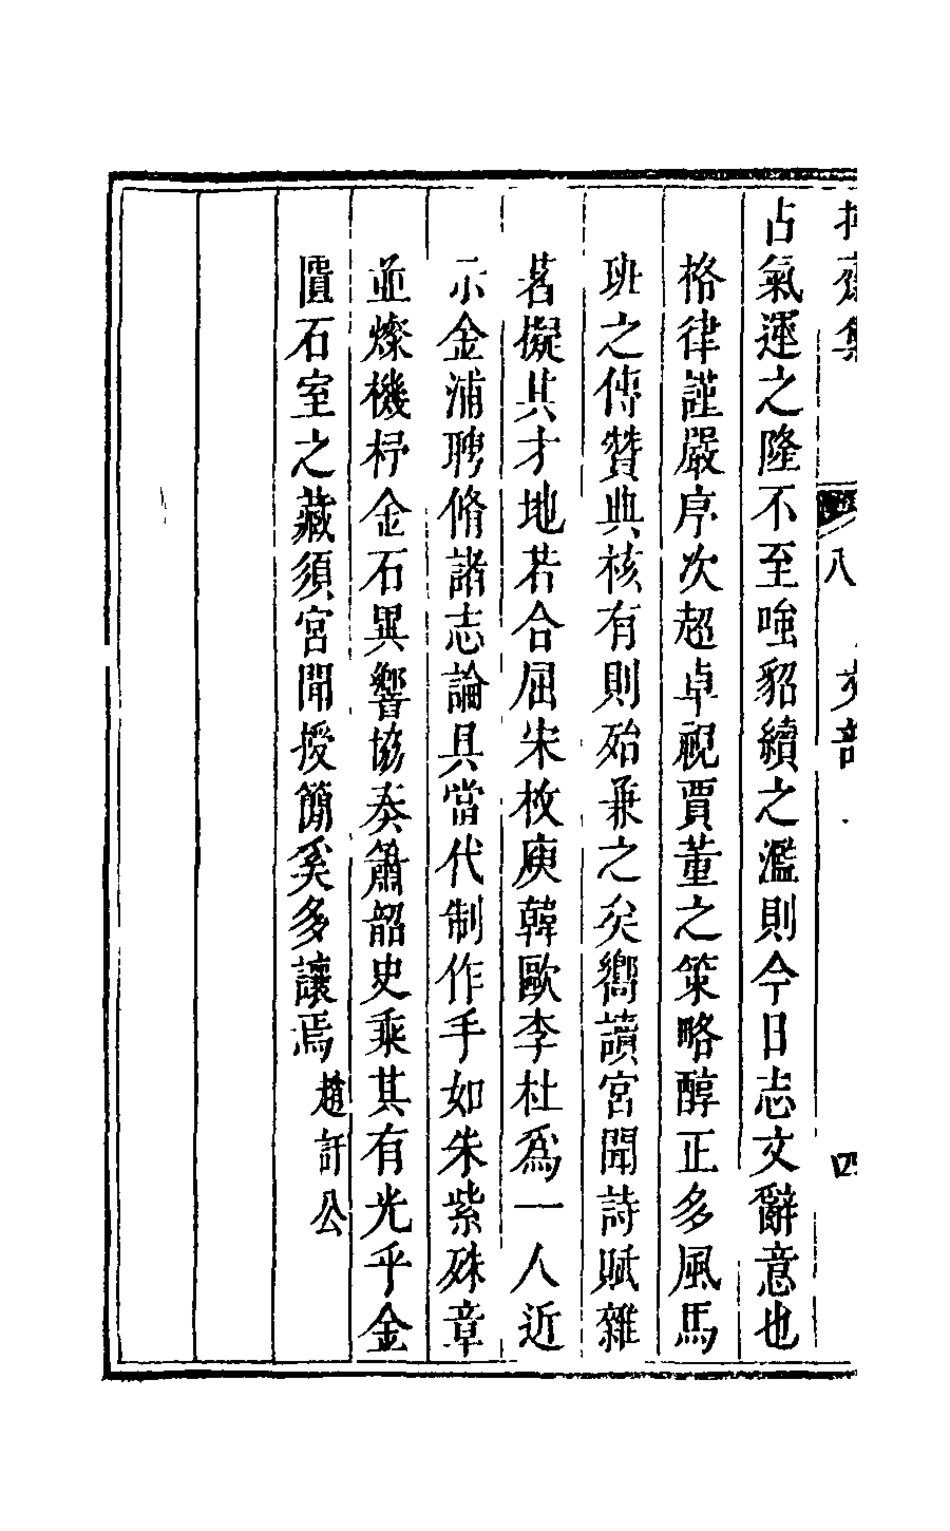 占氣運之隆不至嗤貂續之濫則今日志文辭意也
格律謹嚴序次超卓視賈董之策略醇正多風馬
班之傳贊典核有則殆兼之矣嚮讀宮聞詩賦雜
茗擬其才地若合屈宋枚庾韓歐李杜爲一人近
示金浦聘脩諸志論具當代制作手如朱紫殊章
並燦機杼金石異響協奏簫韶史乘其有光乎金
匱石室之藏須宮聞授簡奚多讓焉
趙訐公
八
四